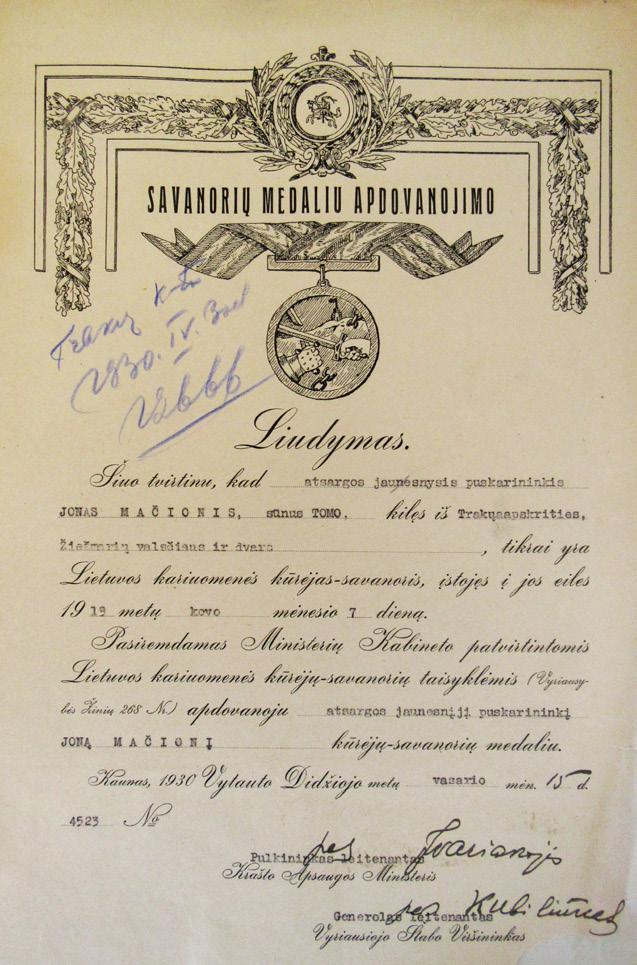 SAVANORIŲ MEDALIU APDOVANOJIMO
1930. IV.
Liudymas.
Šiuo tvirtinu, kad atsargos jaunesnysis puskarininkis
JONAS MAČIONIS, sūnus TOMO, kilęs iš Trakųaapskrities,
Žiežmarių valsčiaus ir dvaro, tikrai yra
Lietuvos kariuomenės kūrėjas-savanoris, įstojęs į jos eiles
1919 metų kovo mėnesio 7 dieną.
Pasiremdamas Ministerių Kabineto patvirtintomis
Lietuvos kariuomenės kūrėjų-savanorių taisyklėmis (Vyriausy-
bės Žinių 268 Nr.) apdovanoju atsargos jaunesnįjį puskarininkį
JONĄ MAČIONĮ kūrėjų-savanorių medaliu.
Kaunas, 1930 Vytauto Didžiojo metų vasario mėn. 15 d.
4523 No
Pulkininkas leitenantas
Krašto Apsaugos Ministeris
Generolas leitenantas
Vyriausiojo Štabo Viršininkas